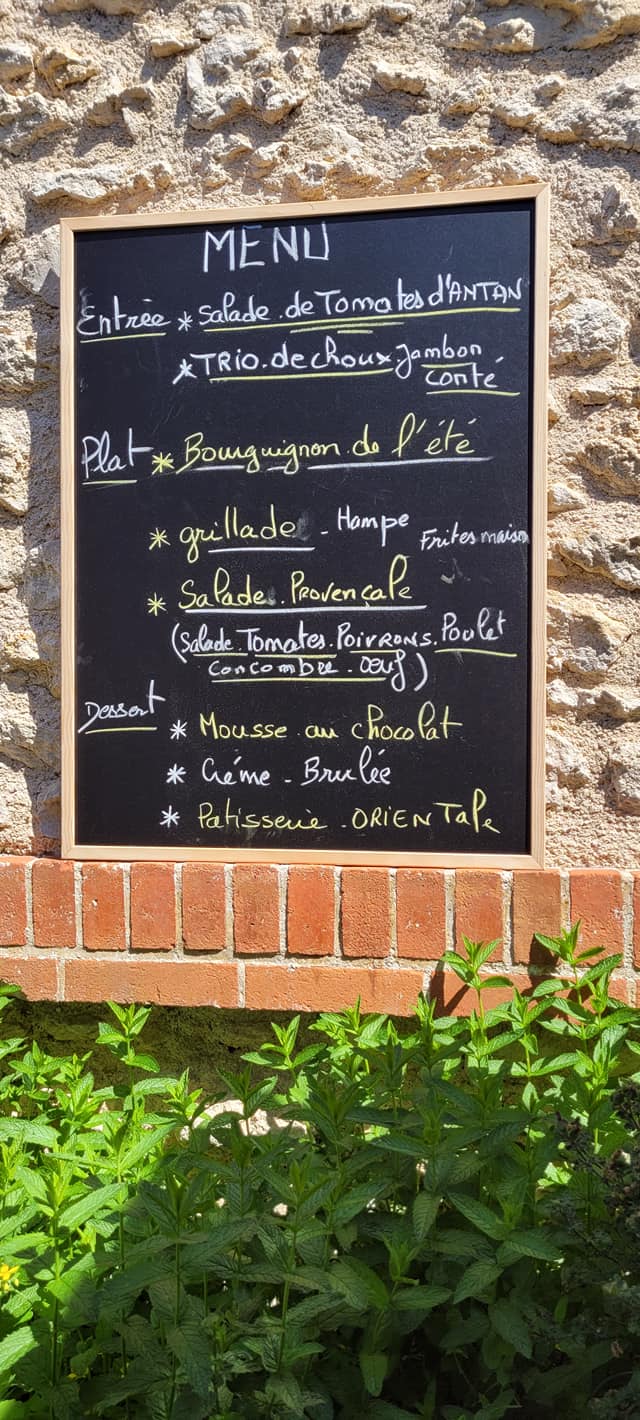 MENU
Entrée * Salade de Tomates d'ANTAN
* TRIO de choux Jambon
Conté
Plat * Bourguignon de l'été
* grillade - Hampe Frites maison
* Salade Provençale
(Salade. Tomates. POIVRONS. Poulet
Concombre. Oeuf)
Dessert
* Mousse au chocolat
* Créme - Brulée
* Patisserie ORIENTale